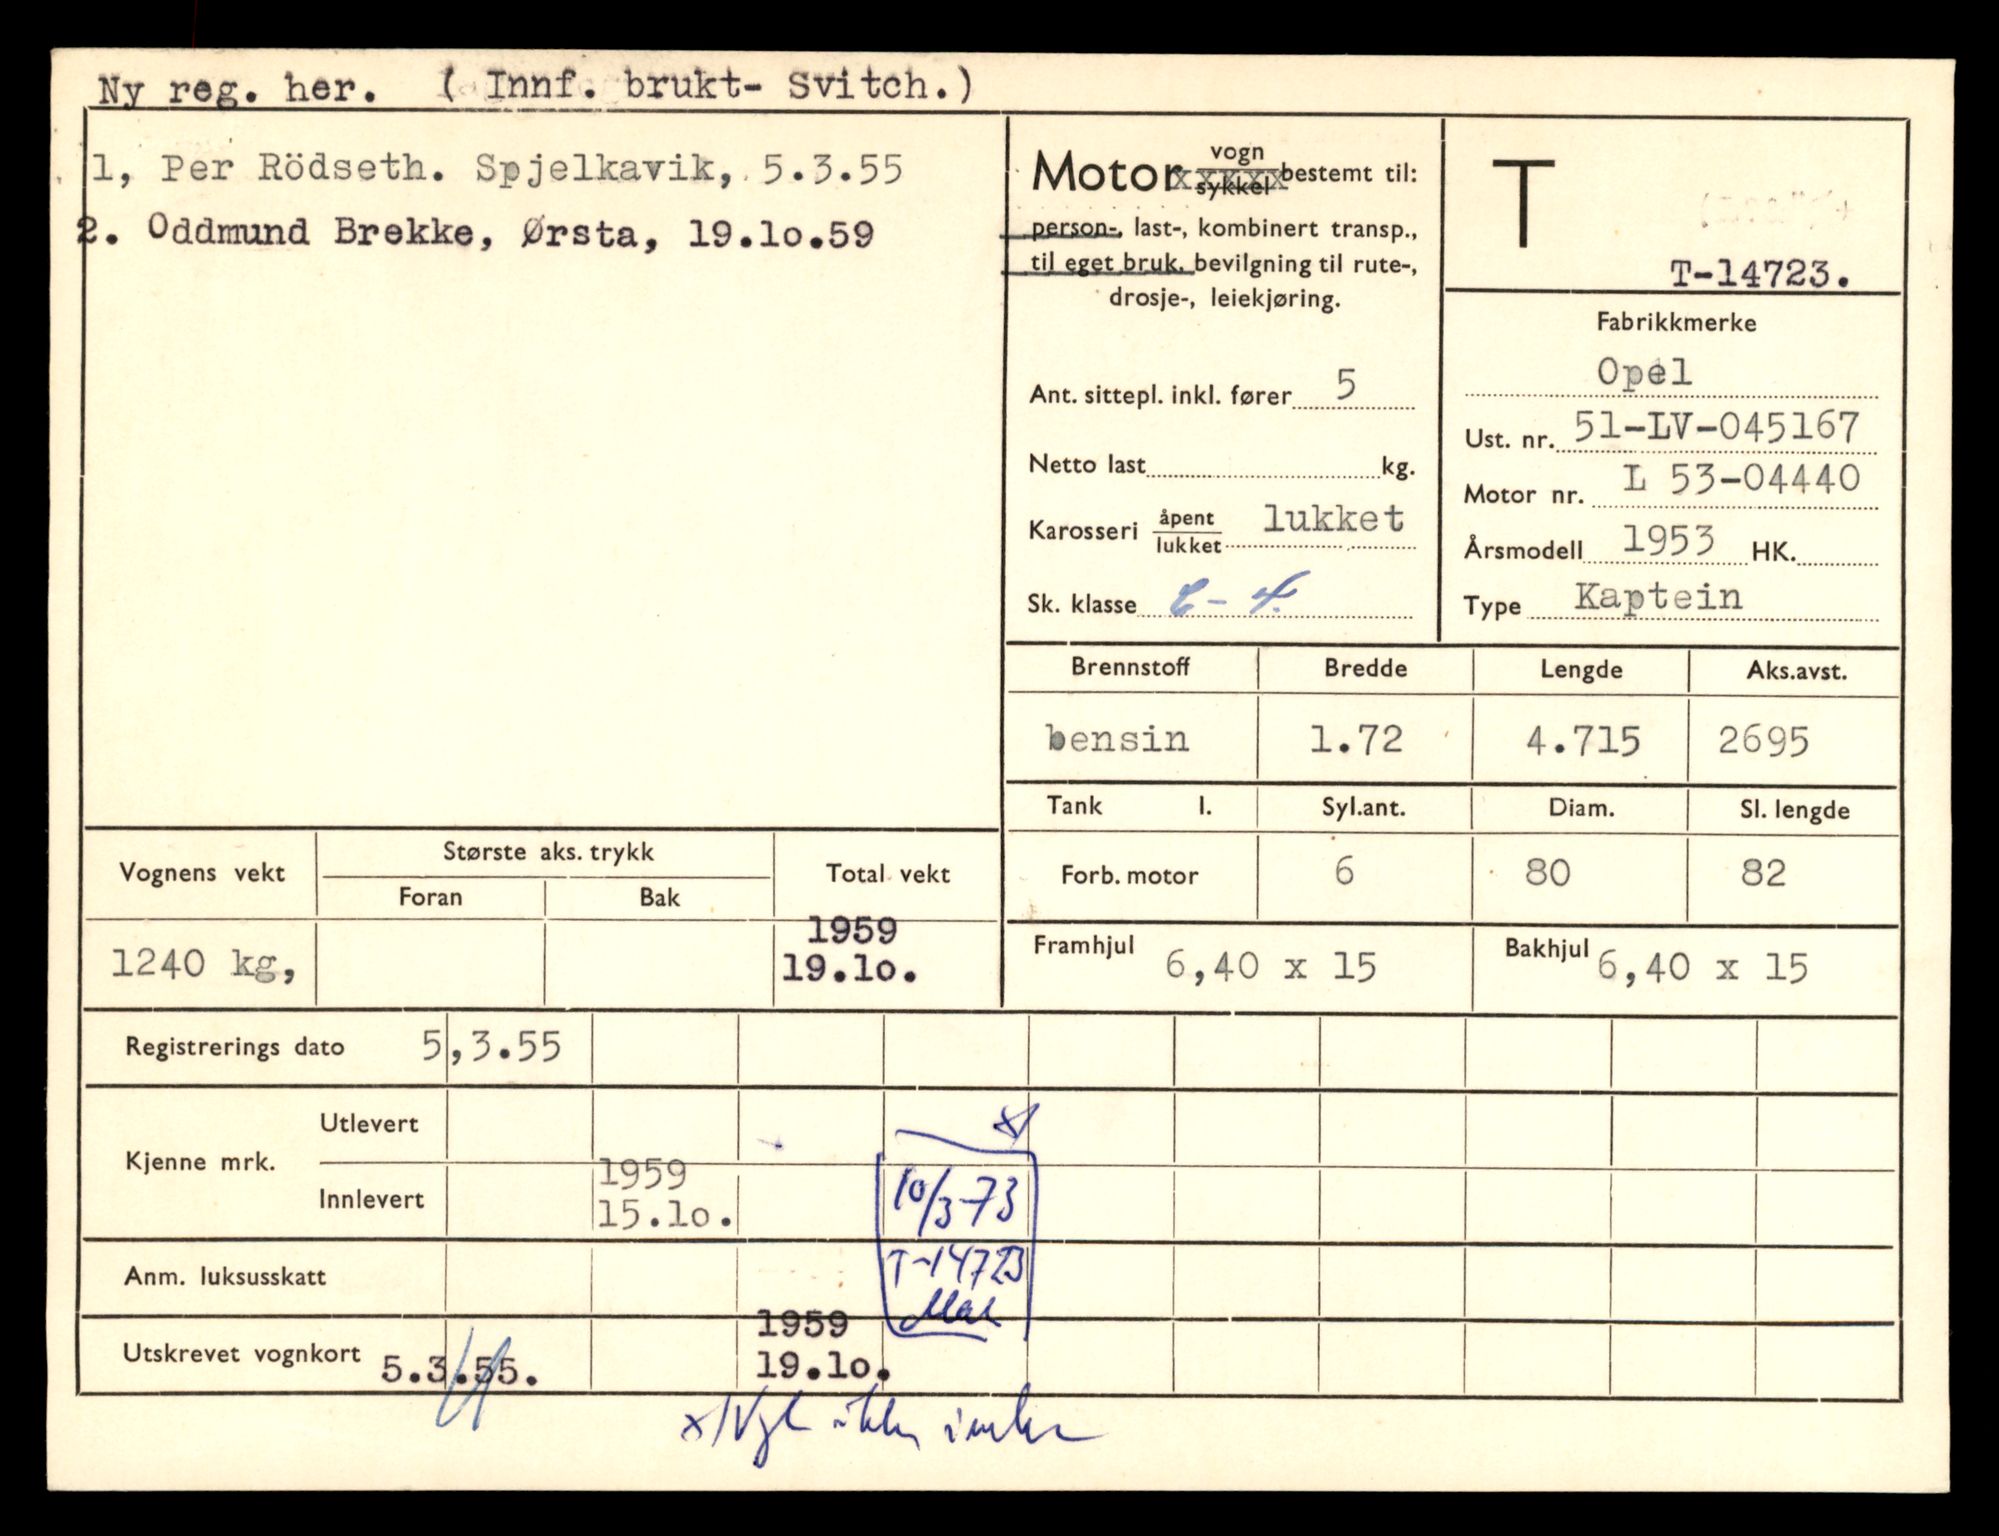 Ny reg. her. ( Innf. brukt- Svitch.)
1, Per Rödseth. Spjelkavik, 5.3.55
2. Oddmund Brekke, Ørsta, 19.lo.59
Motor vogn sykkel bestemt til:
person-, last-, kombinert transp.,
til eget bruk. bevilgning til rute-,
drosje-, leiekjøring.
Ant. sittepl. inkl. fører 5
Netto last kg.
Karosseri åpent lukket lukket
Sk. klasse C-4.
T
T-14723.
Fabrikkmerke
Opel
Ust. nr. 51-LV-045167
Motor nr. L 53-04440
Årsmodell 1953 HK.
Type Kaptein
Brennstoff Bredde Lengde Aks.avst.
bensin 1.72 4.715 2695
Tank l. Syl.ant. Diam. Sl. lengde
Forb. motor 6 80 82
Framhjul 6,40 x 15 Bakhjul 6,40 x 15
Vognens vekt Største aks. trykk Total vekt
Foran Bak
1959
1240 kg, 19.lo.
Registrerings dato 5,3.55
Kjenne mrk. Utlevert
Innlevert 1959
15.lo.
x/
10/3-73
T-14723
Anm. luksusskatt
1959
Utskrevet vognkort 5.3.55. 19.lo.
x/ Vgk ikke innlev